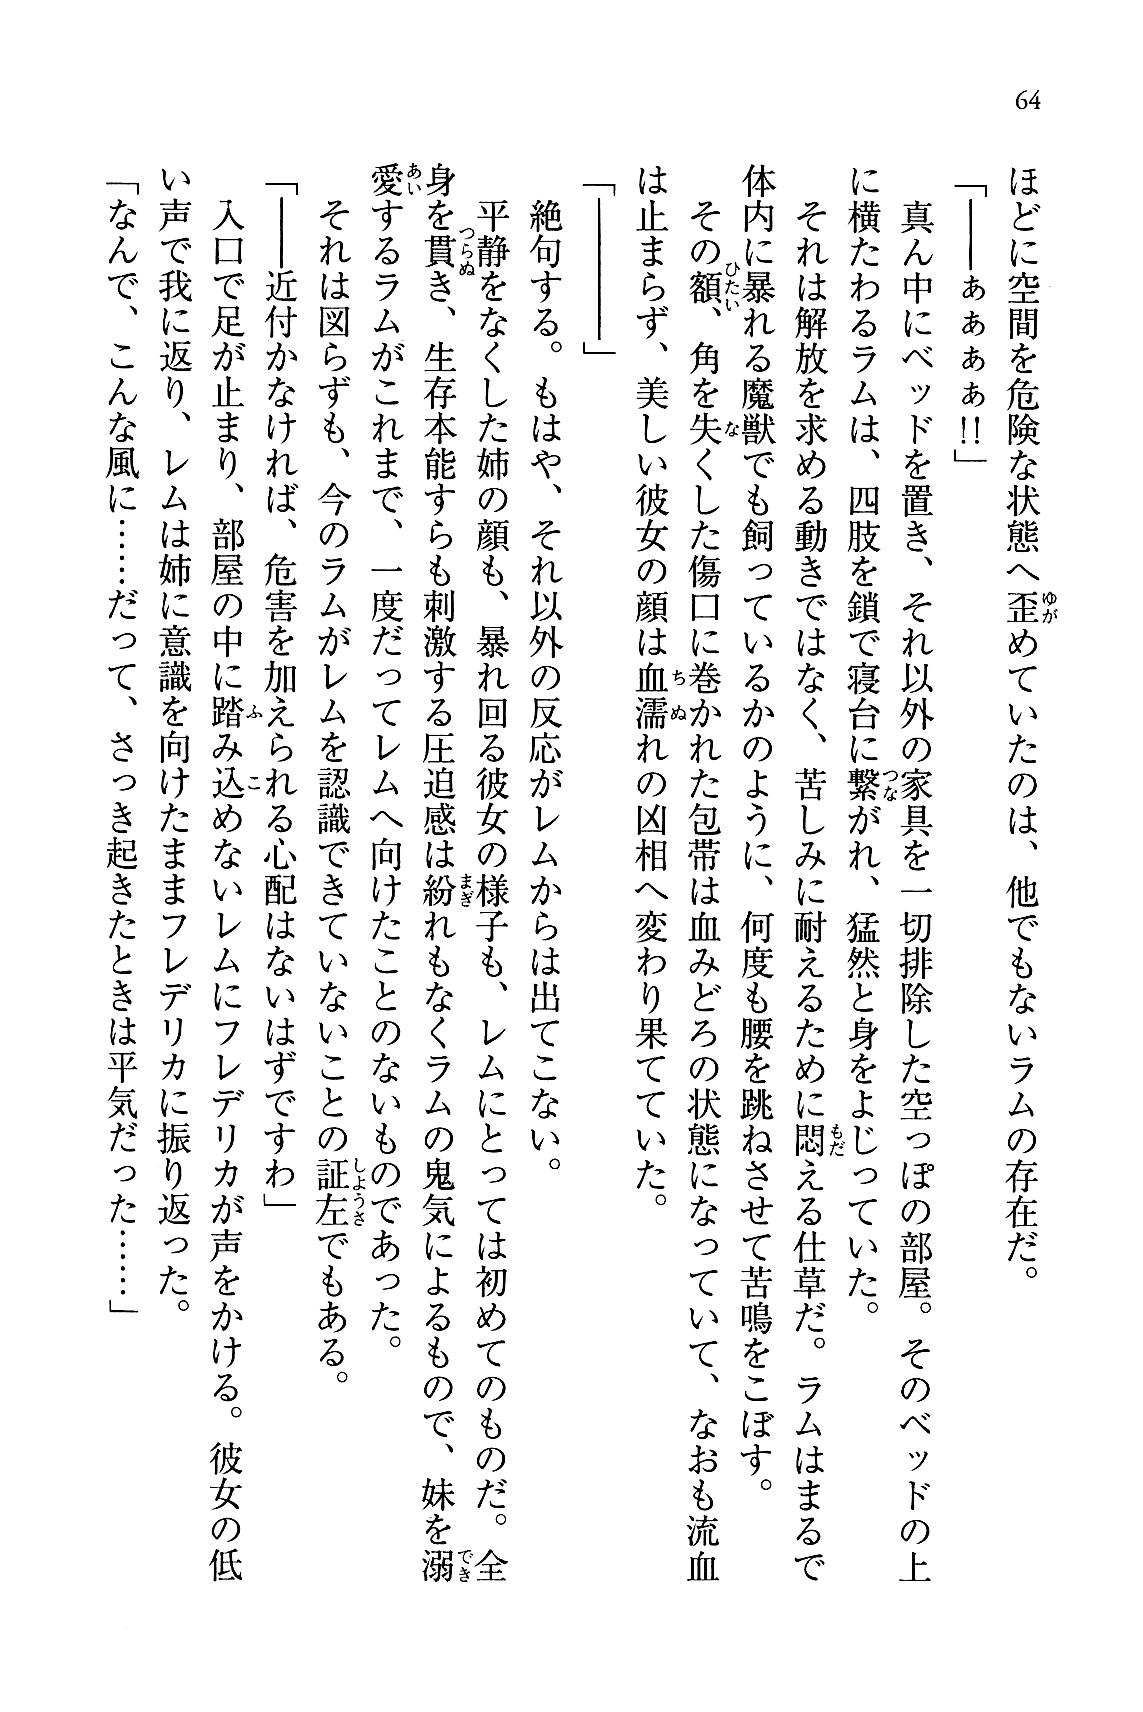 64
ほどに空間を危険な状態へ歪めていたのは、他でもないラムの存在だ。
「――ぁぁぁぁ!!」
　真ん中にベッドを置き、それ以外の家具を一切排除した空っぽの部屋。そのベッドの上
に横たわるラムは、四肢を鎖で寝台に繋がれ、猛然と身をよじっていた。
　それは解放を求める動きではなく、苦しみに耐えるために悶える仕草だ。ラムはまるで
体内に暴れる魔獣でも飼っているかのように、何度も腰を跳ねさせて苦鳴をこぼす。
　その額、角を失くした傷口に巻かれた包帯は血みどろの状態になっていて、なおも流血
は止まらず、美しい彼女の顔は血濡れの凶相へ変わり果てていた。
「――――」
　絶句する。もはや、それ以外の反応がレムからは出てこない。
　平静をなくした姉の顔も、暴れ回る彼女の様子も、レムにとっては初めてのものだ。全
身を貫き、生存本能すらも刺激する圧迫感は紛れもなくラムの鬼気によるもので、妹を溺
愛するラムがこれまで、一度だってレムへ向けたことのないものであった。
　それは図らずも、今のラムがレムを認識できていないことの証左でもある。
「――近付かなければ、危害を加えられる心配はないはずですわ」
　入口で足が止まり、部屋の中に踏み込めないレムにフレデリカが声をかける。彼女の低
い声で我に返り、レムは姉に意識を向けたままフレデリカに振り返った。
「なんで、こんな風に……だって、さっき起きたときは平気だった……」